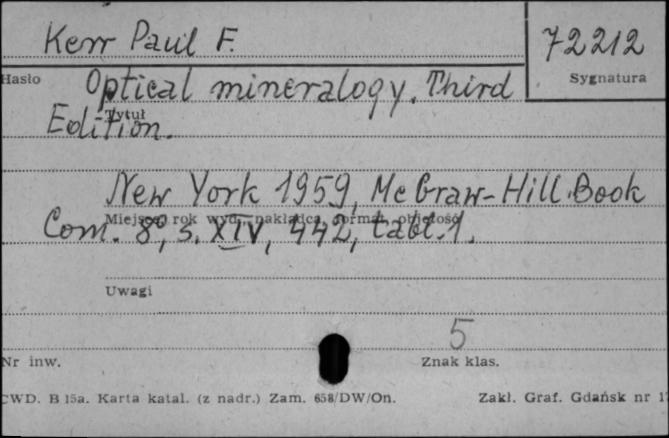 Kerr Paul F.
72212
Hasło
Sygnatura
Optical mineralogy. Third
Tytuł
Edition.
New York 1959, Mc Graw-Hill Book
Miejsce, rok wyd., nakładca, format, objętość
Com. 8°, s. XIV, 442, tabl. 1.
Uwagi
5
Nr inw.
Znak klas.
CWD. B 15a. Karta katal. (z nadr.) Zam. 658/DW/On.
Zakł. Graf. Gdańsk nr